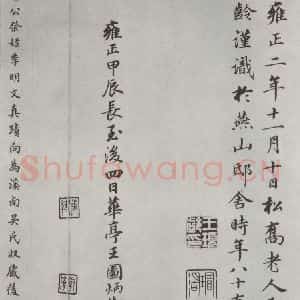 雍正二年十一月十日松嵩老人王
齡謹識於燕山邸舍時年八十有
雍正甲辰長至後四日華亭王圖炳
公徐指季明文真蹟向為溪南吳氏收藏後
Shufawang.CN